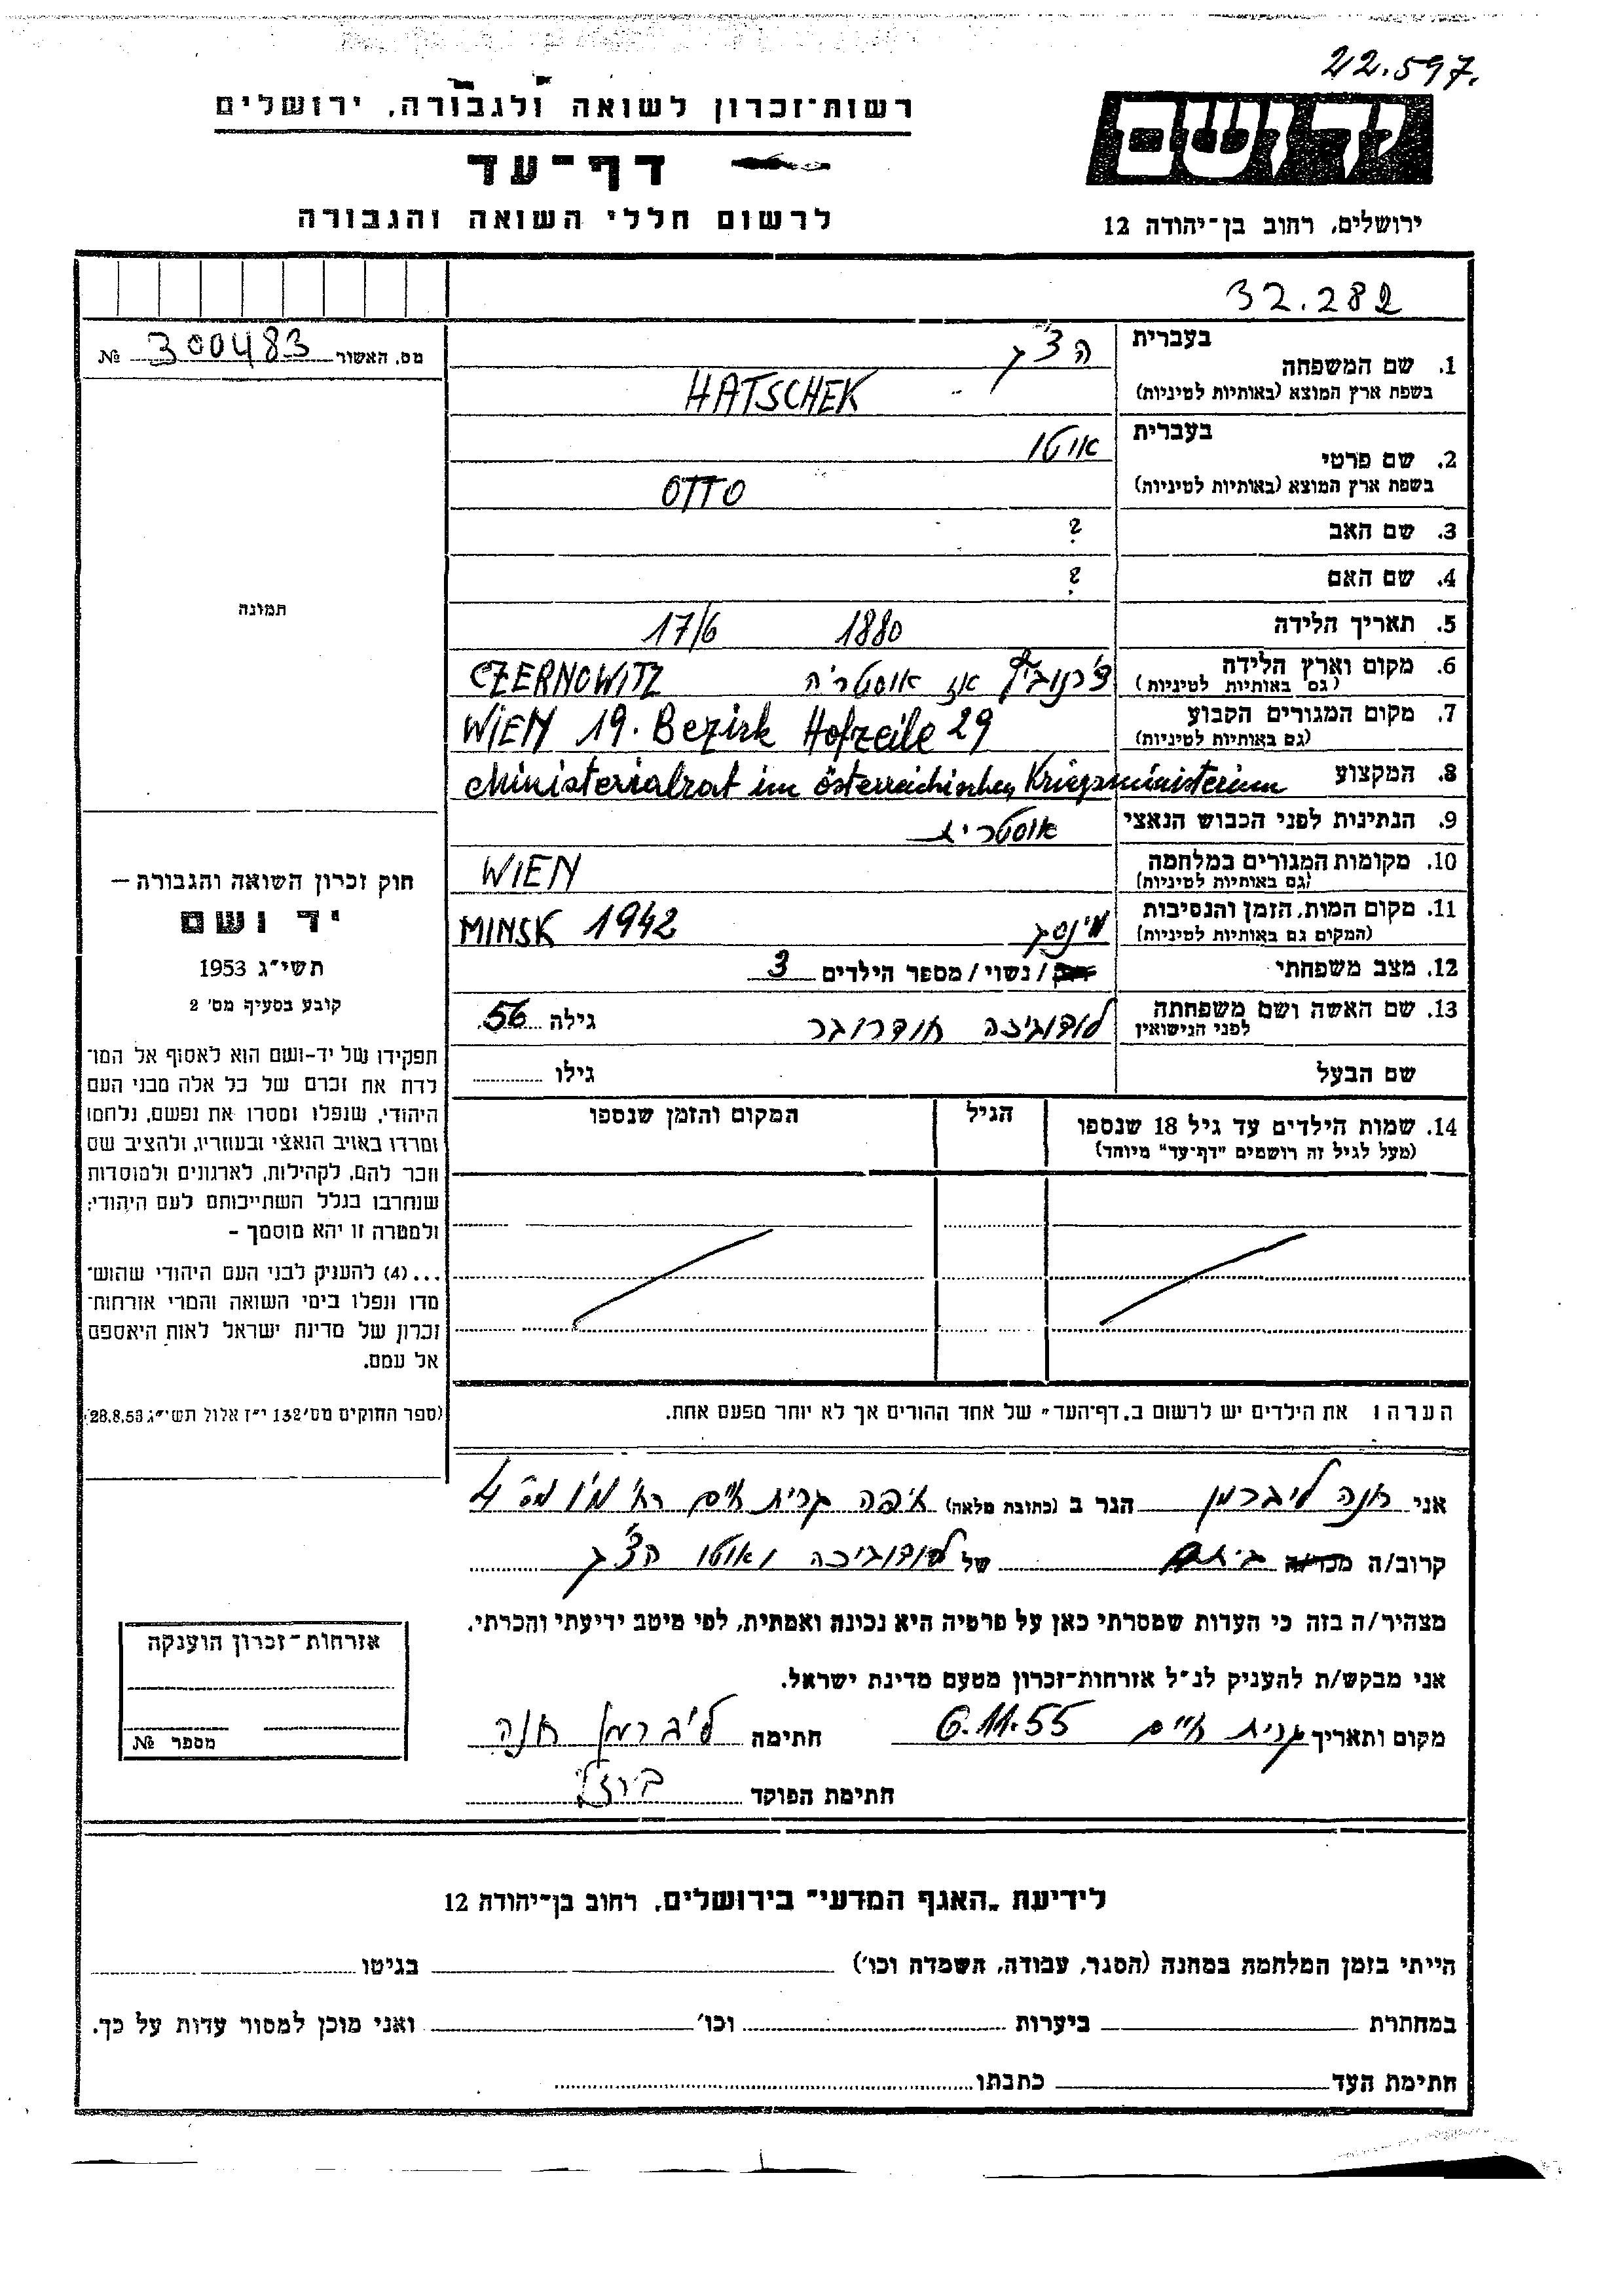 22.597.
רשות־זכרון לשואה ולגבורה, ירושלים
יד ושם
דף־עד
לרשום חללי השואה והגבורה
ירושלים, רחוב בן־יהודה 12
32.282
מס. האשור 300483 №
תמונה
חוק זכרון השואה והגבורה —
יד ושם
תשי״ג 1953
קובע בסעיף מס' 2
תפקידו של יד-ושם הוא לאסוף אל המו־
לדת את זכרם של כל אלה מבני העם
היהודי, שנפלו ומסרו את נפשם, נלחמו
ומרדו באויב הנאצי ובעוזריו, ולהציב שם
וזכר להם, לקהילות, לארגונים ולמוסדות
שנחרבו בגלל השתייכותם לעם היהודי;
ולמטרה זו יהא מוסמך –
...(4) להעניק לבני העם היהודי שהוש־
מדו ונפלו בימי השואה והמרי אזרחות־
זכרון של מדינת ישראל לאות היאספם
אל עמם.
(ספר החוקים מס' 132 י״ז אלול תשי״ג 28.8.53)
בעברית הצ'ק
1. שם המשפחה
בשפת ארץ המוצא (באותיות לטיניות) HATSCHEK
בעברית אוטו
2. שם פרטי
בשפת ארץ המוצא (באותיות לטיניות) OTTO
3. שם האב ?
4. שם האם ?
5. תאריך הלידה 17/6 1880
6. מקום וארץ הלידה צ'רנוביץ אז אוסטריה CZERNOWITZ
(גם באותיות לטיניות)
7. מקום המגורים הקבוע WIEN 19. Bezirk Hofzeile 29
(גם באותיות לטיניות)
8. המקצוע Ministerialrat im österreichischen Kriegsministerium
9. הנתינות לפני הכבוש הנאצי אוסטרית
10. מקומות המגורים במלחמה WIEN
(גם באותיות לטיניות)
11. מקום המות, הזמן והנסיבות מינסק MINSK 1942
(המקום גם באותיות לטיניות)
12. מצב משפחתי / נשוי / מספר הילדים 3
13. שם האשה ושם משפחתה לודוביכה גילה 56
לפני הנישואין
שם הבעל גילו
14. שמות הילדים עד גיל 18 שנספו הגיל המקום והזמן שנספו
(מעל לגיל זה רושמים "דף־עד" מיוחד)
הערה: את הילדים יש לרשום ב„דף־העד" של אחד ההורים אך לא יותר מפעם אחת.
אני חנה ליברמן הגר ב (כתובת מלאה) חיפה קרית חיים 4
קרוב/ה מכר/ה בתם של לודוביכה ואוטו הצ'ק
מצהיר/ה בזה כי העדות שמסרתי כאן על פרטיה היא נכונה ואמתית, לפי מיטב ידיעתי והכרתי.
אני מבקש/ת להעניק לנ״ל אזרחות־זכרון מטעם מדינת ישראל.
מקום ותאריך קרית חיים 6.11.55 חתימה ליברמן חנה
חתימת הפוקד
אזרחות־זכרון הוענקה
מספר №
לידיעת „האגף המדעי" בירושלים, רחוב בן־יהודה 12
הייתי בזמן המלחמה במחנה (הסגר, עבודה, השמדה וכו') בגיטו
במחתרת ביערות וכו' ואני מוכן למסור עדות על כך.
חתימת העד כתבתו